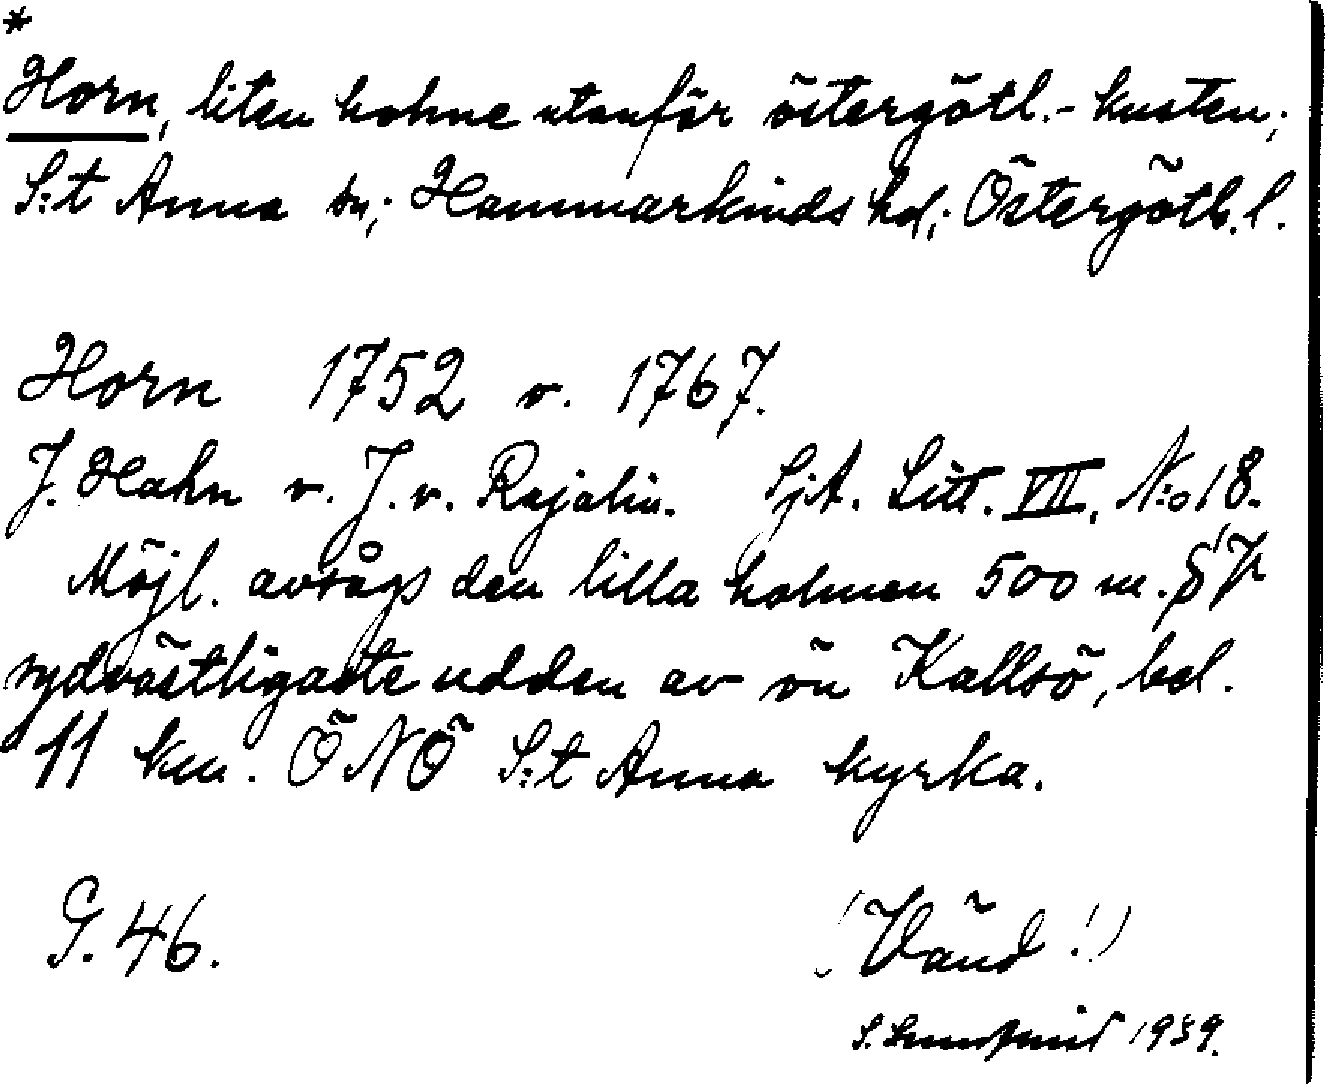 *
Horn, liten holme utanför östergötl.-kusten;
S:t Anna sn; Hammarkinds hd; Östergötl. l.
Horn 1752 o. 1767.
J. Hahn o. J. v. Rajalin. Sjk. Litt. VII, N:o 18.
Möjl. avsågs den lilla holmen 500 m. SV
sydvästligaste udden av ön Kallsö, bel.
11 km. ÖNÖ S:t Anna kyrka.
G. 46.
(Vänd!)
S. 1939.